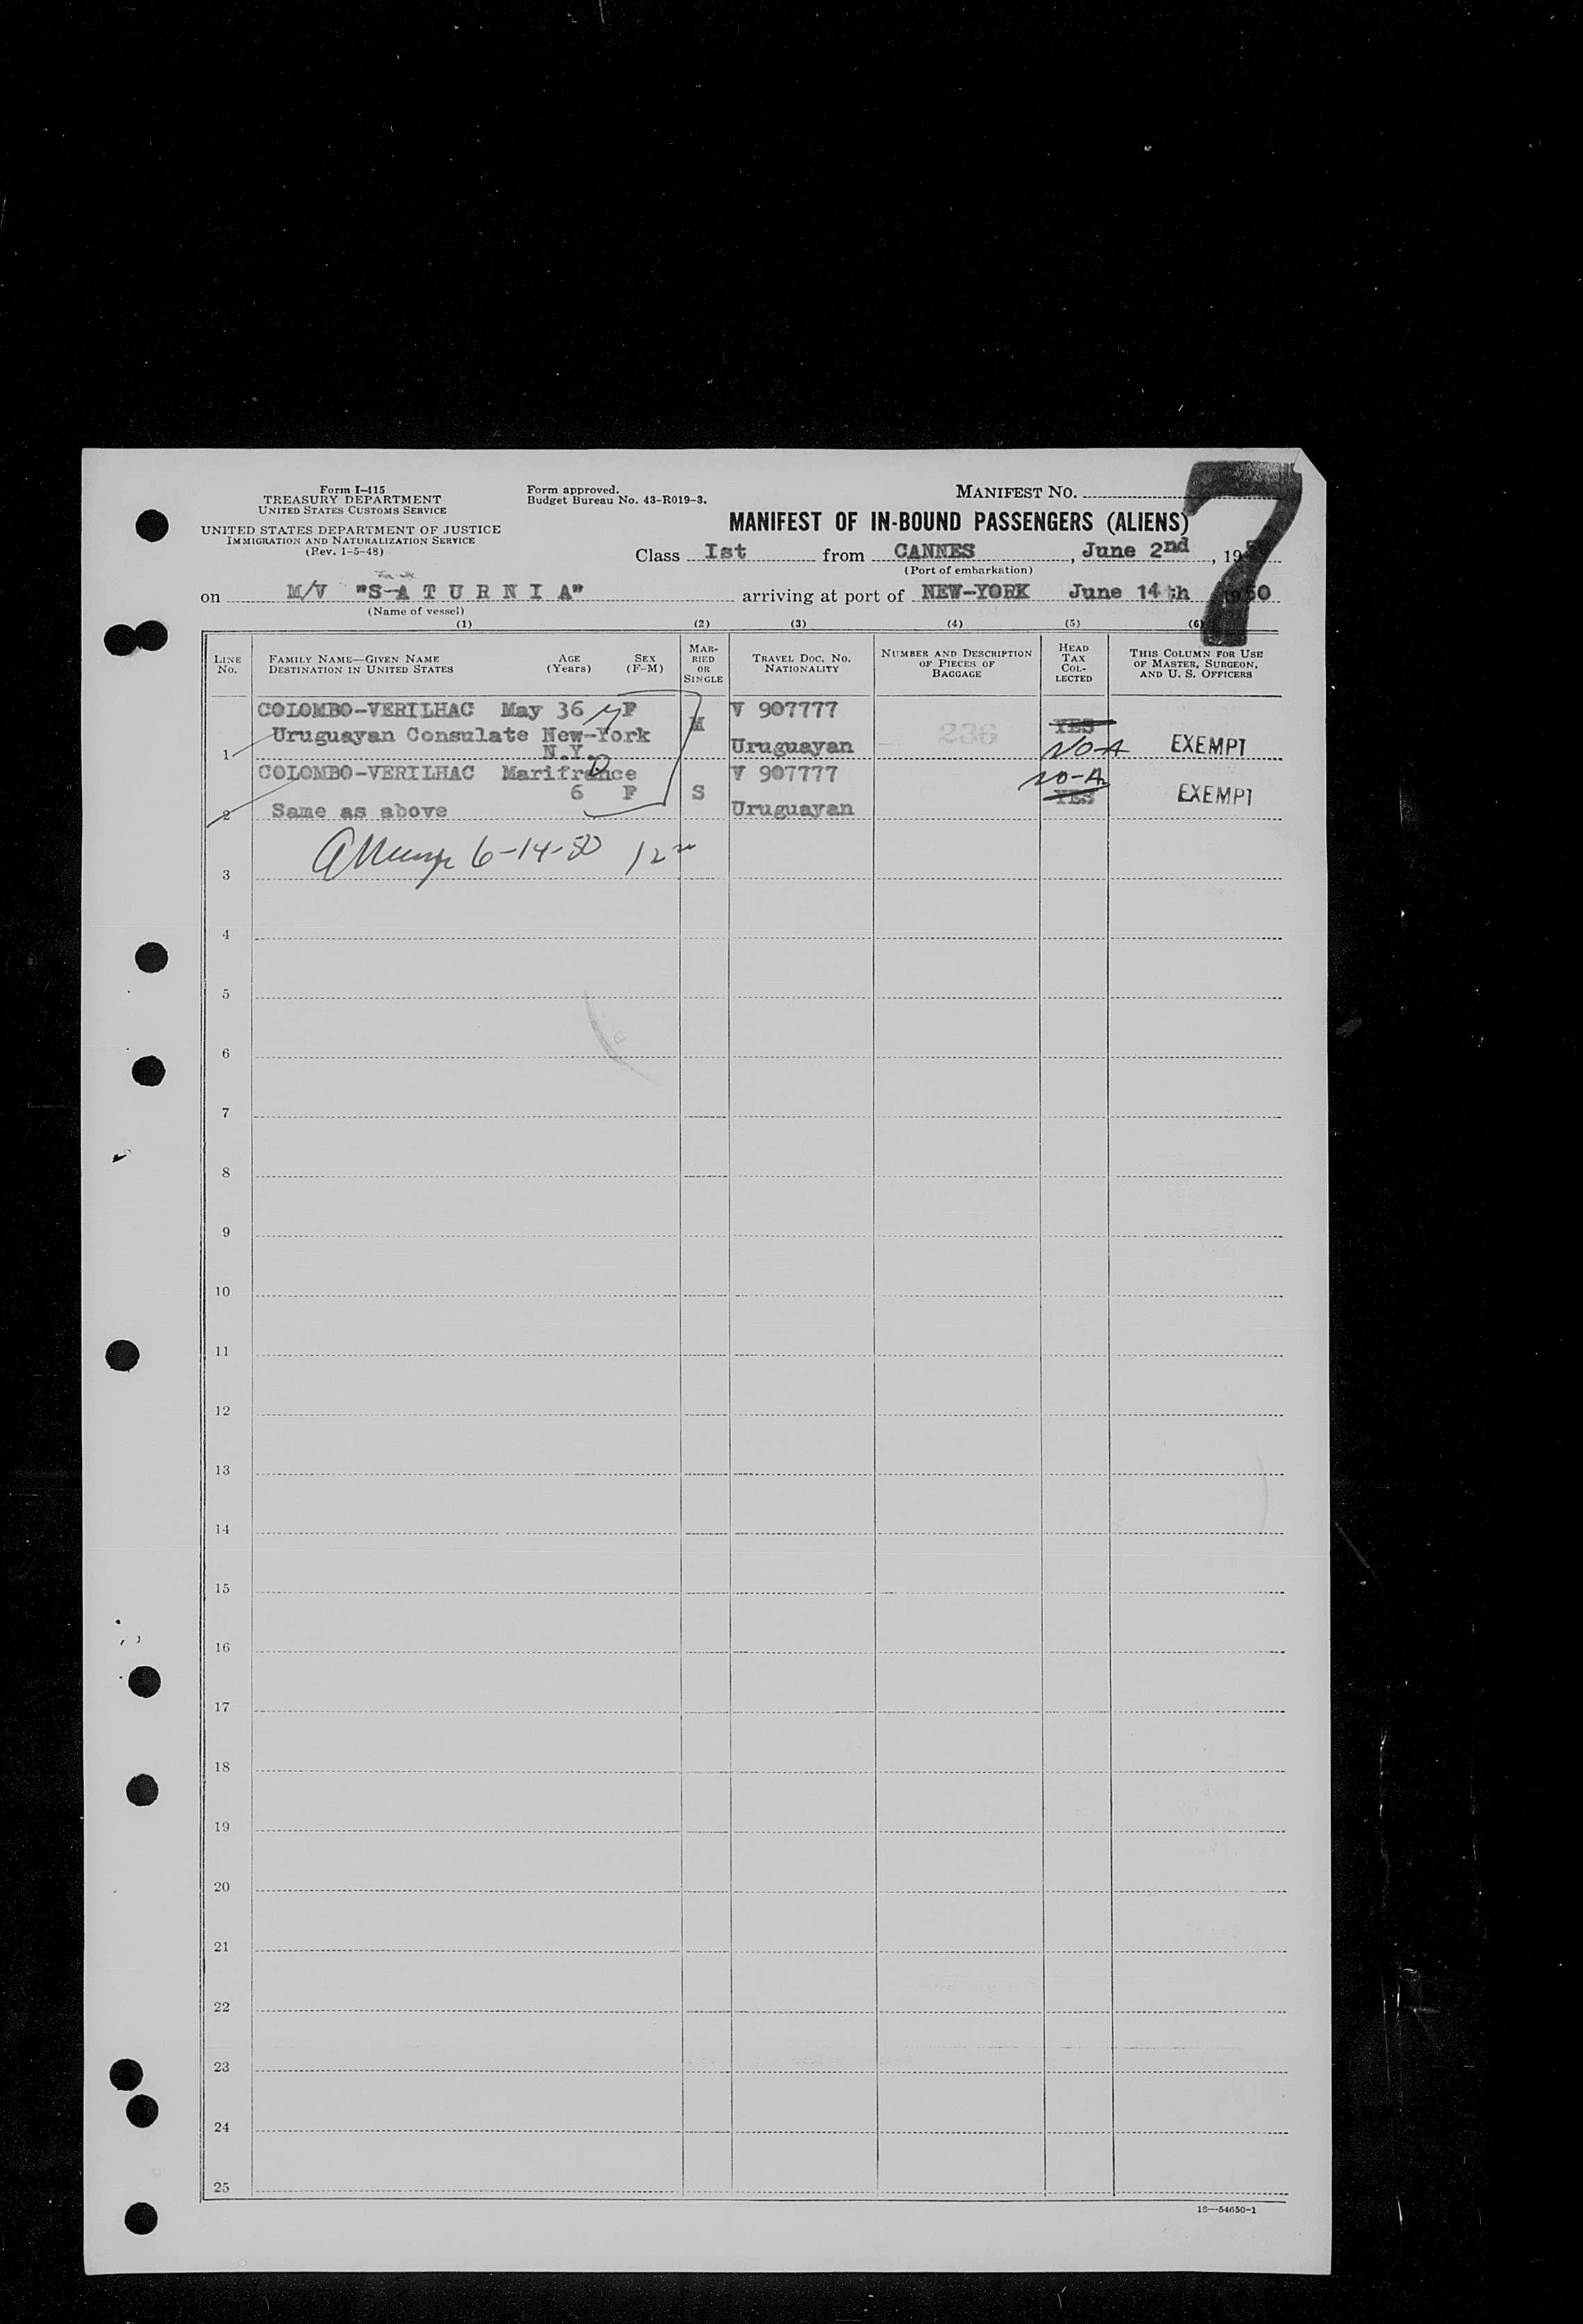 Form I-415
TREASURY DEPARTMENT
UNITED STATES CUSTOMS SERVICE
UNITED STATES DEPARTMENT OF JUSTICE
IMMIGRATION AND NATURALIZATION SERVICE
(Rev. 1-5-48)
Form approved.
Budget Bureau No. 43-R019-3.
MANIFEST NO.
7
MANIFEST OF IN-BOUND PASSENGERS (ALIENS)
Class Ist from CANNES, June 2nd, 19
(Port of embarkation)
on M/V "S A T U R N I A" arriving at port of NEW-YORK June 14th 1950
(Name of vessel)
(1) (2) (3) (4) (5) (6)
LINE NO.
FAMILY NAME—GIVEN NAME
DESTINATION IN UNITED STATES
AGE (Years)
SEX (F-M)
MAR-RIED OR SINGLE
TRAVEL DOC. NO. NATIONALITY
NUMBER AND DESCRIPTION OF PIECES OF BAGGAGE
HEAD TAX COL-LECTED
THIS COLUMN FOR USE OF MASTER, SURGEON, AND U. S. OFFICERS
COLOMBO-VERILHAC May 36 F M V 907777
Uruguayan Consulate New-York 236 YES
1 N.Y. Uruguayan NO-A EXEMPT
COLOMBO-VERILHAC Marifrance V 907777 NO-A
6 F S YES EXEMPT
2 Same as above Uruguayan
6-14-50
3
4
5
6
7
8
9
10
11
12
13
14
15
16
17
18
19
20
21
22
23
24
25
16—54650-1